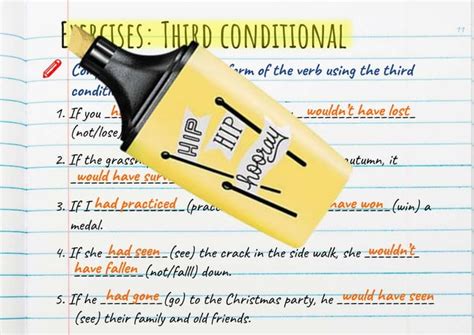 Exercises: Third conditional
orm of the verb using the third
1. If you wouldn't have lost
(not/lose)
2. If the grassh utumn, it
would have surv
3. If I had practiced (prac ave won (win) a
medal.
4. If she had seen (see) the crack in the side walk, she wouldn't
have fallen (not/falll) down.
5. If he had gone (go) to the Christmas party, he would have seen
(see) their family and old friends.
HIP
HIP
hooray